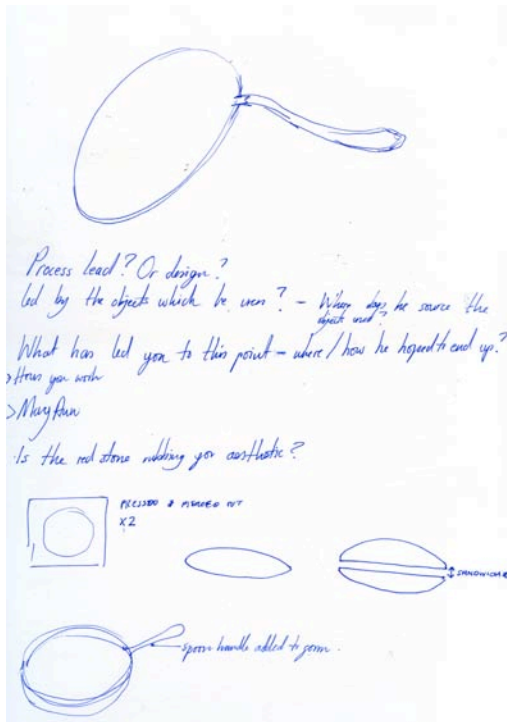 Process lead? Or design?
led by the objects which he uses? – Where does he source the
objects used?
What has led you to this point – where / how he hoped to end up?
> How you work
> Mary Ann
Is the red stone rubbing your aesthetic?
PRESSED & PIERCED OUT
X2
SANDWICH
spoon handle added to form.